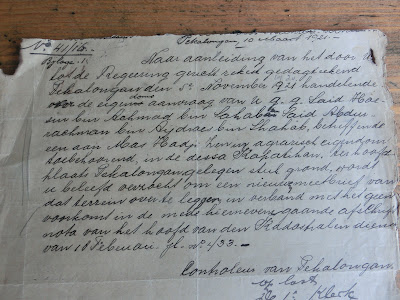 No 411/16.
Pekalongan, 16 Maart 1921.
Bijlage: 1.
Naar aanleiding van het door U
tot de Regeering gericht rekest gedagteekend
Pekalongan den 5n November 1920 handelende
over de eigendoms aanvraag van U q.q. Said Hoe-
sin bin Achmad bin Sahab en Said Abdul-
rachman bin Sjdroes bin Shahab, betreffende
een aan Mas Hadji agrarisch eigendom
toebehoorend, in de dessa Kapatihan, ter hoofd
plaats Pekalongan gelegen stuk grond, wordt
U beleefd verzocht om een nieuwe meetbrief van
dat terrein over te leggen, in verband met het geen
voorkomt in de mede hiernevens gaande afschrift
nota van het hoofd van den Kadastralen dienst
van 18 Februari jl. No. 133.-
Controleur van Pekalongan,
op last
De 1e Klerk